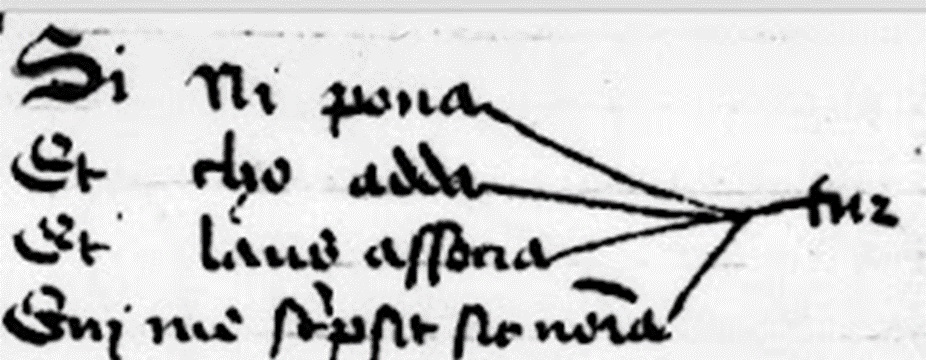 Si Ni pona
Et cho adda
Et laus assona
Qui me scpsit sic noīa
tur